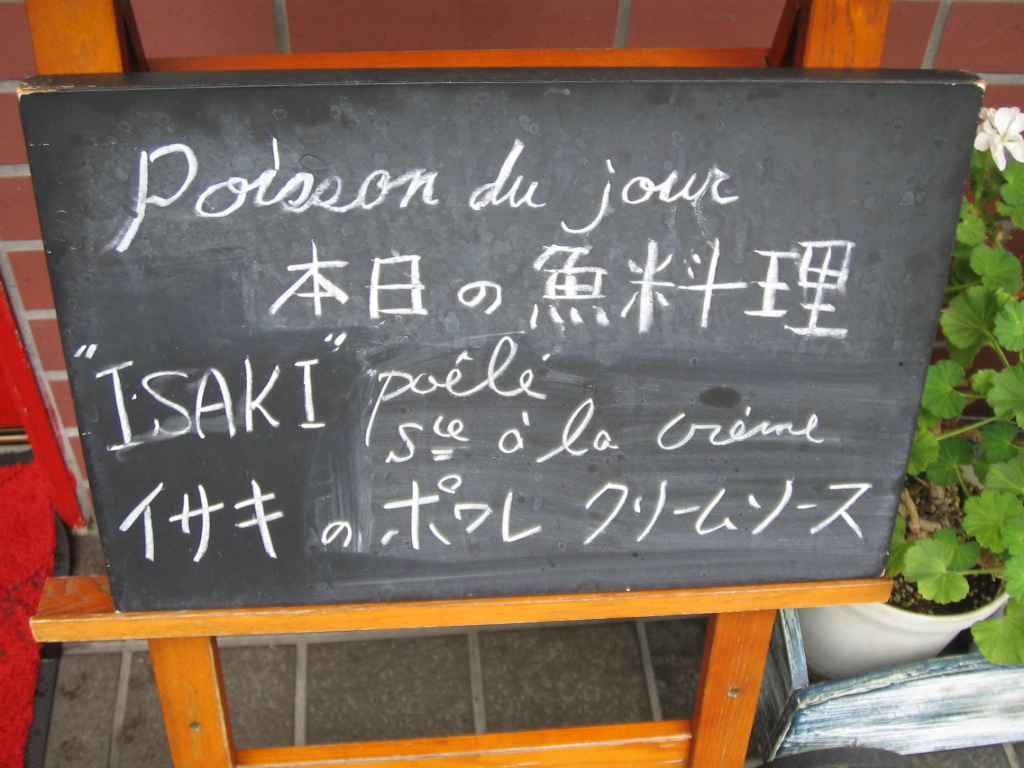 Poisson du jour
本日の魚料理
"ISAKI" poêlé
sce à la crème
イサキのポワレ クリームソース